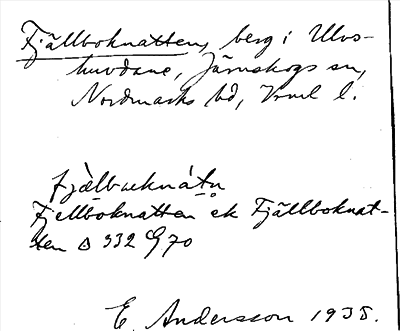 Fjällboknatten, berg i Ulvs-
huvdane, Järnskogs sn,
Nordmarks hd, Vrml l.
fjälbωeknátṇ
Fjellboknatten ek Fjällboknat-
ten △ 332 G70
E. Andersson 1935.